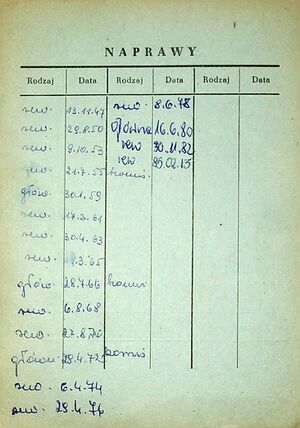 NAPRAWY
Rodzaj Data Rodzaj Data Rodzaj Data
rew. 13.11.47 rew. 8.6.78
rew. 29.8.50 główna 16.6.80
rew. 9.10.53 rew 30.11.82
rew. 21.7.55 rew
główn. 30.1.59
rew. 17.2.61
rew. 30.4.63
rew. .3.65
główn. 28.7.66
rew. 6.8.68
rew. 27.8.70
główn. 29.4.72
rew. 6.4.74
rew. 29.4.76